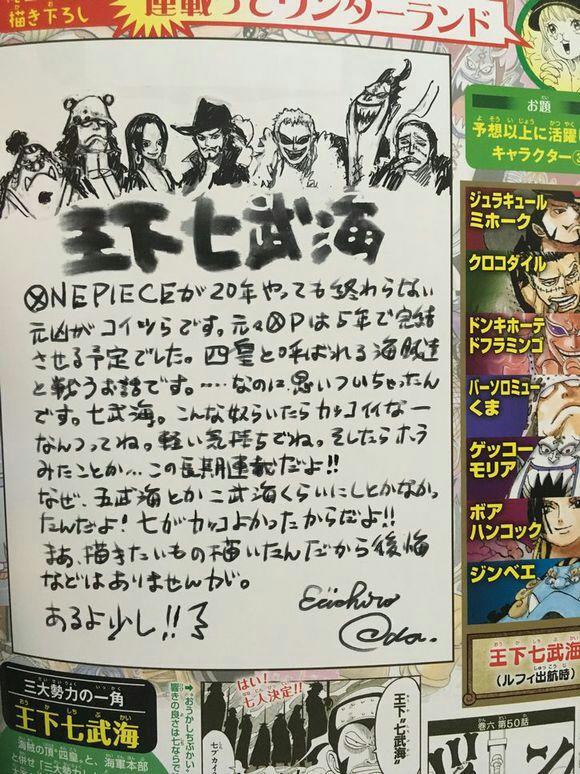 描き下ろし
連載ってワンダーランド
王下七武海
ONEPIECEが20年やっても終わらない
元凶がコイツらです。元々OPは5年で完結
させる予定でした。四皇と呼ばれる海賊達
と戦うお話です。……なのに、思いついちゃったん
です。七武海。こんな奴らいたらカッコイイなー
なんつってね。軽い気持ちでね。そしたらホラ
みたことか…この長期連載だよ!!
なぜ、五武海とか二武海くらいにしとかなかっ
たんだよ!七がカッコよかったからだよ!!
まあ、描きたいもの描いたんだから後悔
などはありませんが。
あるよ少し!!
Eiichiro
Oda.
お題
予想以上に活躍
キャラクター
ジュラキュール
ミホーク
クロコダイル
ドンキホーテ
ドフラミンゴ
バーソロミュー
くま
ゲッコー
モリア
ボア
ハンコック
ジンベエ
王下七武海
(ルフィ出航時)
三大勢力の一角
王下七武海
海賊の頂"四皇"と、海軍本部
と併せ「三大勢力」
➡おうかしちぶかい
響きの良さは七ならで
はい!
七人決定!!
王下"七武海"
巻六 第50話